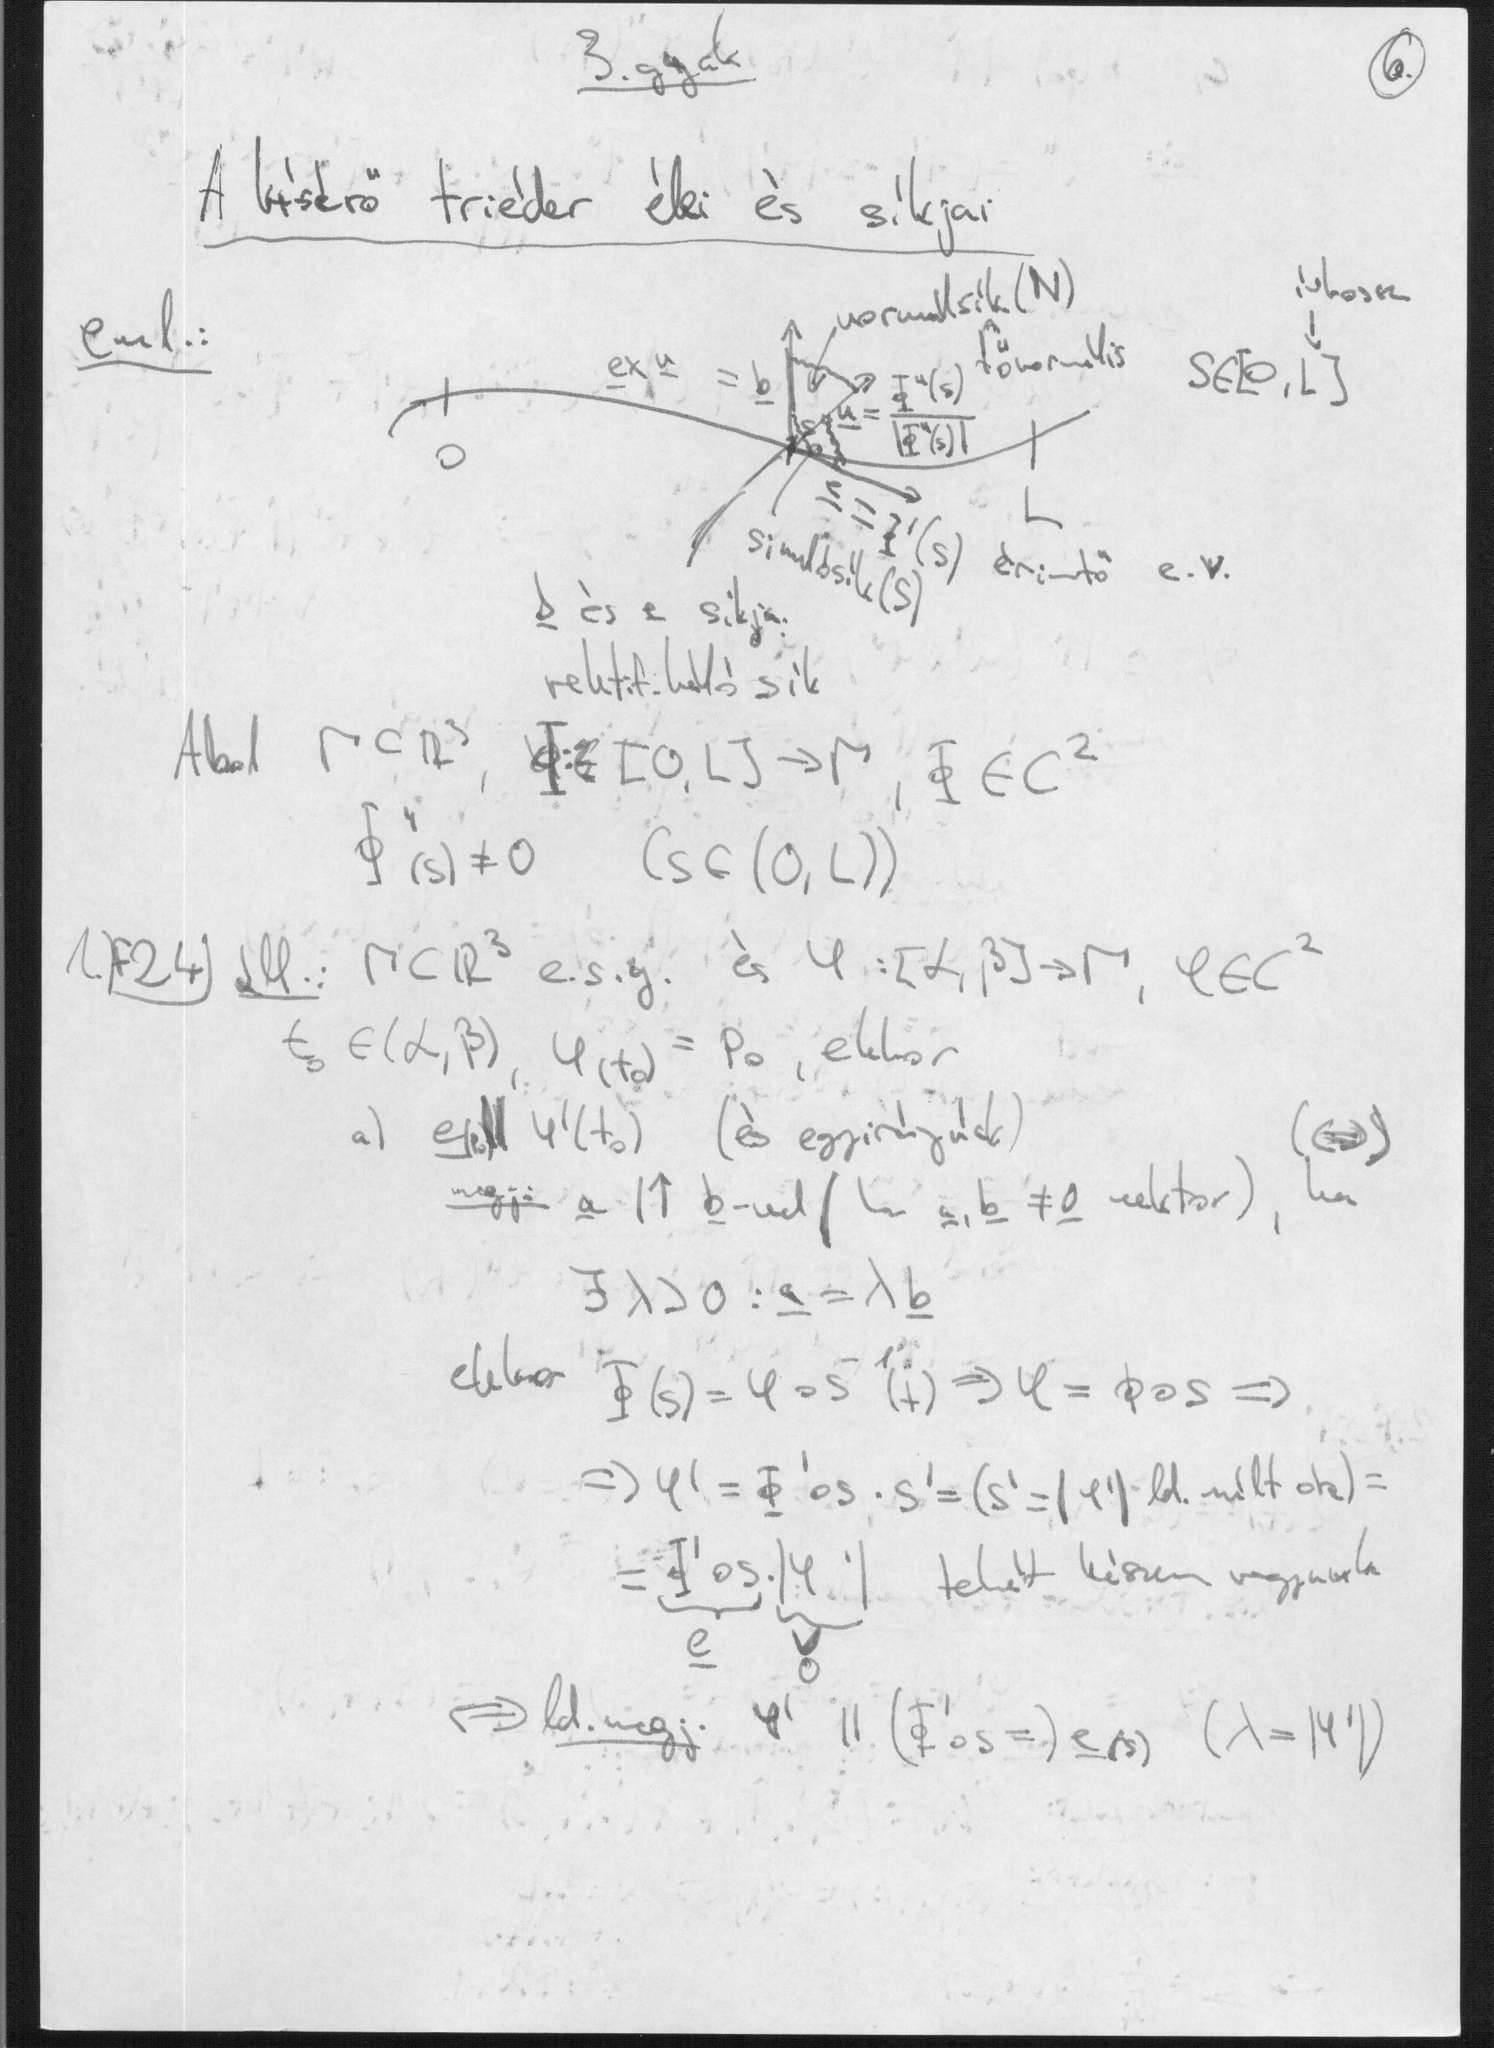 3. gyak
6.
A kisérő triéder élei és síkjai
eml.:
normálsík (N)
ívhossz
↓
e×n = b
főnormális
S∈[0,L]
n = Φ''(s)/|Φ''(s)|
0
L
e = Φ'(s) érintő e.v.
simulósík (S)
b és e síkja:
rektifikáló sík
Ahol Γ⊂R³, Φ: [0,L]→Γ, Φ∈C²
Φ''(s) ≠ 0 (s∈(0,L))
1.) F24) áll.: Γ⊂R³ e.s.g. és φ:[α,β]→Γ, φ∈C²
t₀ ∈(α,β), φ(t₀) = P₀, ekkor
a) e(s₀) || φ'(t₀) (és egyirányúak) (⇔)
megj: a |↑ b-vel (ha a, b ≠ 0 vektor), ha
∃ λ>0 : a = λ b
ekkor Φ(s) = φ∘s⁻¹(t) ⇒ φ = Φ∘s ⇒
⇒ φ' = Φ'∘s · s' = (s' = |φ'| ld. múlt óra) =
= Φ'∘s · |φ'| tehát készen vagyunk
e
∨
0
⇔ ld. megj. φ' || (Φ'∘s =) e(s) (λ = |φ'|)